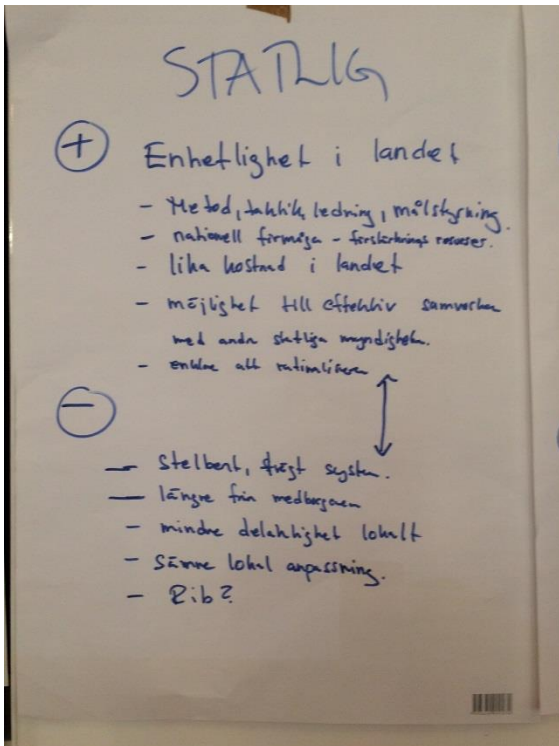 STATLIG
+ Enhetlighet i landet
- Metod, taktik, ledning, målstyrning.
- nationell förmåga - förstärknings resurser.
- lika kostnad i landet
- möjlighet till effektiv samverkan
med andra statliga myndigheter.
- enklare att rationalisera
-
- Stelbent, trögt system.
- längre från medborgaren
- mindre delaktighet lokalt
- Sämre lokal anpassning.
- Rib?